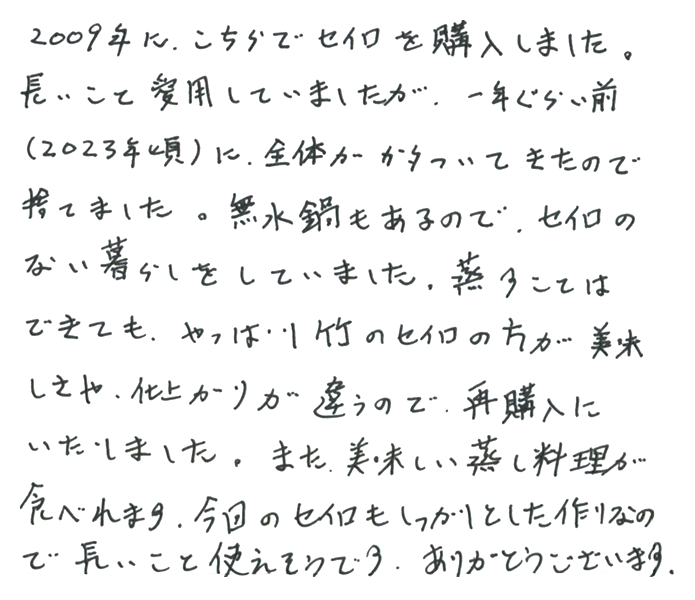 2009年に、こちらでセイロを購入しました。
長いこと愛用していましたが、一年ぐらい前
(2023年頃)に、全体ががたついてきたので
捨てました。無水鍋もあるので、セイロの
ない暮らしをしていました。蒸すことは
できても、やっぱり竹のセイロの方が美味
しさや、仕上がりが違うので、再購入に
いたしました。また、美味しい蒸し料理が
食べれます。今回のセイロもしっかりとした作りなの
で長いこと使えそうです。ありがとうございます。